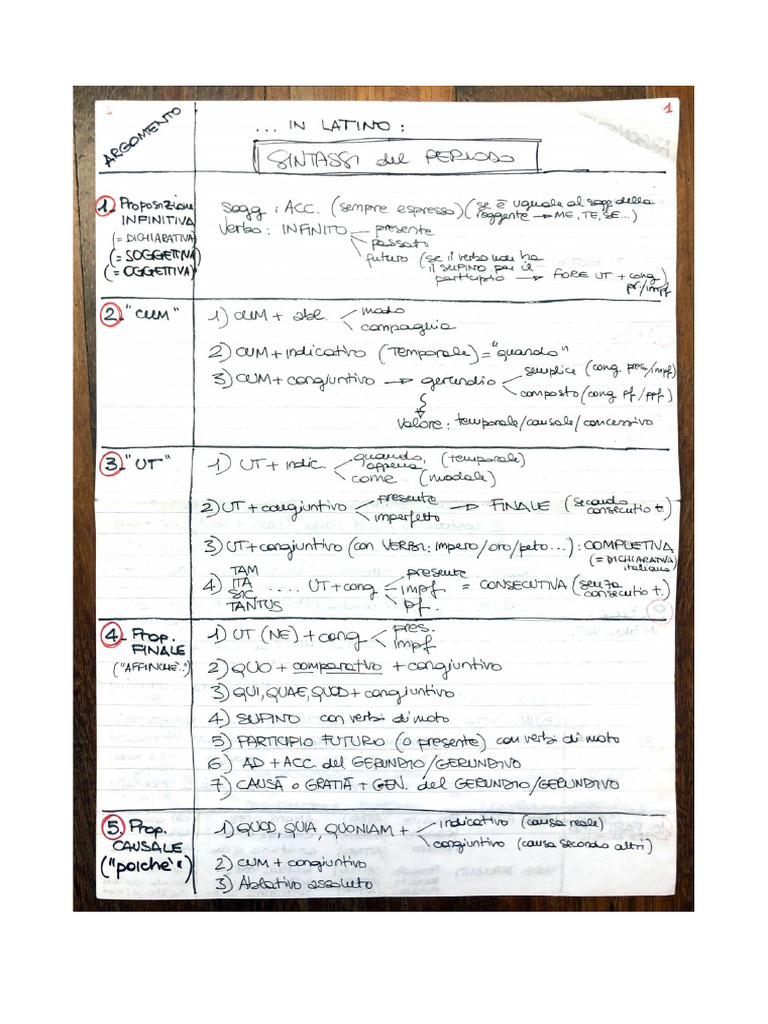 1
ARGOMENTO
... IN LATINO:
SINTASSI del PERIODO
1. Proposizione INFINITIVA
(= DICHIARATIVA)
(= SOGGETTIVA)
(= OGGETTIVA)
Sogg: ACC. (sempre espresso) (se è uguale al sogg. della reggente → ME, TE, SE...)
Verbo: INFINITO
presente
passato
futuro (se il verbo non ha il SUPINO per il participio → FORE UT + cong pr/impf)
2. "CUM"
1) CUM + abl.
modo
compagnia
2) CUM + indicativo (TEMPORALE) = "quando"
3) CUM + congiuntivo → gerundio
semplice (cong pres/impf)
composto (cong pf/ppf)
Valore: temporale/causale/concessivo
3. "UT"
1) UT + indic.
quando, appena (temporale)
come (modale)
2) UT + congiuntivo
presente
imperfetto
→ FINALE (secondo consecutio t.)
3) UT + congiuntivo (con VERBI: impero/oro/peto...): COMPLETIVA
(= DICHIARATIVA italiana)
4) TAM
ITA
SIC
TANTUS
.... UT + cong
presente
impf.
pf.
= CONSECUTIVA (senza consecutio t.)
4. Prop. FINALE
("AFFINCHÈ..")
1) UT (NE) + cong
pres.
impf
2) QUO + comparativo + congiuntivo
3) QUI, QUAE, QUOD + congiuntivo
4) SUPINO con verbi di moto
5) PARTICIPIO FUTURO (o presente) con verbi di moto
6) AD + ACC. del GERUNDIO/GERUNDIVO
7) CAUSĀ o GRATIĀ + GEN. del GERUNDIO/GERUNDIVO
5. Prop. CAUSALE
("poichè")
1) QUOD, QUIA, QUONIAM +
indicativo (causa reale)
congiuntivo (causa secondo altri)
2) CUM + congiuntivo
3) Ablativo assoluto